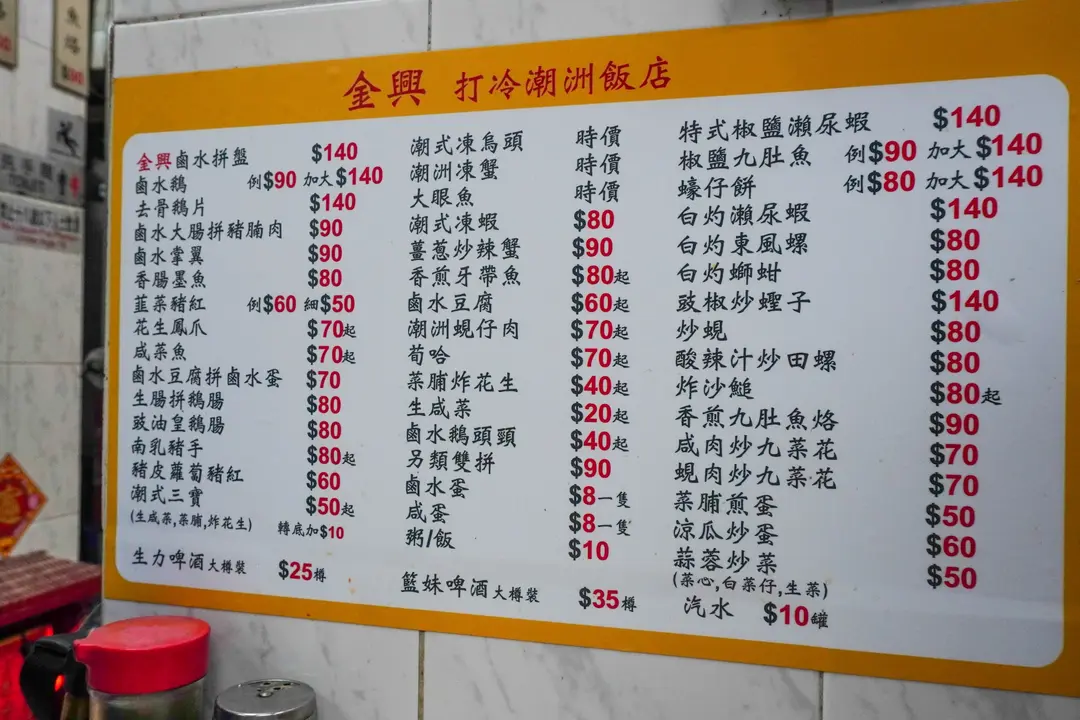 金興 打冷潮洲飯店
金興鹵水拼盤 $140
鹵水鵝 例$90 加大$140
去骨鵝片 $140
鹵水大腸拼豬腩肉 $90
鹵水掌翼 $90
香腸墨魚 $80
韮菜豬紅 例$60 細$50
花生鳳爪 $70起
咸菜魚 $70起
鹵水豆腐拼鹵水蛋 $70
生腸拼鵝腸 $80
豉油皇鵝腸 $80
南乳豬手 $80起
豬皮蘿蔔豬紅 $60
潮式三寶 $50起
(生咸菜,菜脯,炸花生) 轉底加$10
生力啤酒大樽裝 $25樽
潮式凍烏頭 時價
潮洲凍蟹 時價
大眼魚 時價
潮式凍蝦 $80
薑葱炒辣蟹 $90
香煎牙帶魚 $80起
鹵水豆腐 $60起
潮洲蜆仔肉 $70起
荀哈 $70起
菜脯炸花生 $40起
生咸菜 $20起
鹵水鵝頭頸 $40起
另類雙拼 $90
鹵水蛋 $8一隻
咸蛋 $8一隻
粥/飯 $10
籃妹啤酒大樽裝 $35樽
特式椒鹽瀨尿蝦 $140
椒鹽九肚魚 例$90 加大$140
蠔仔餅 例$80 加大$140
白灼瀨尿蝦 $140
白灼東風螺 $80
白灼螄蚶 $80
豉椒炒蟶子 $140
炒蜆 $80
酸辣汁炒田螺 $80
炸沙鎚 $80起
香煎九肚魚烙 $90
咸肉炒九菜花 $70
蜆肉炒九菜花 $70
菜脯煎蛋 $50
涼瓜炒蛋 $60
蒜蓉炒菜 $50
(菜心,白菜仔,生菜)
汽水 $10罐